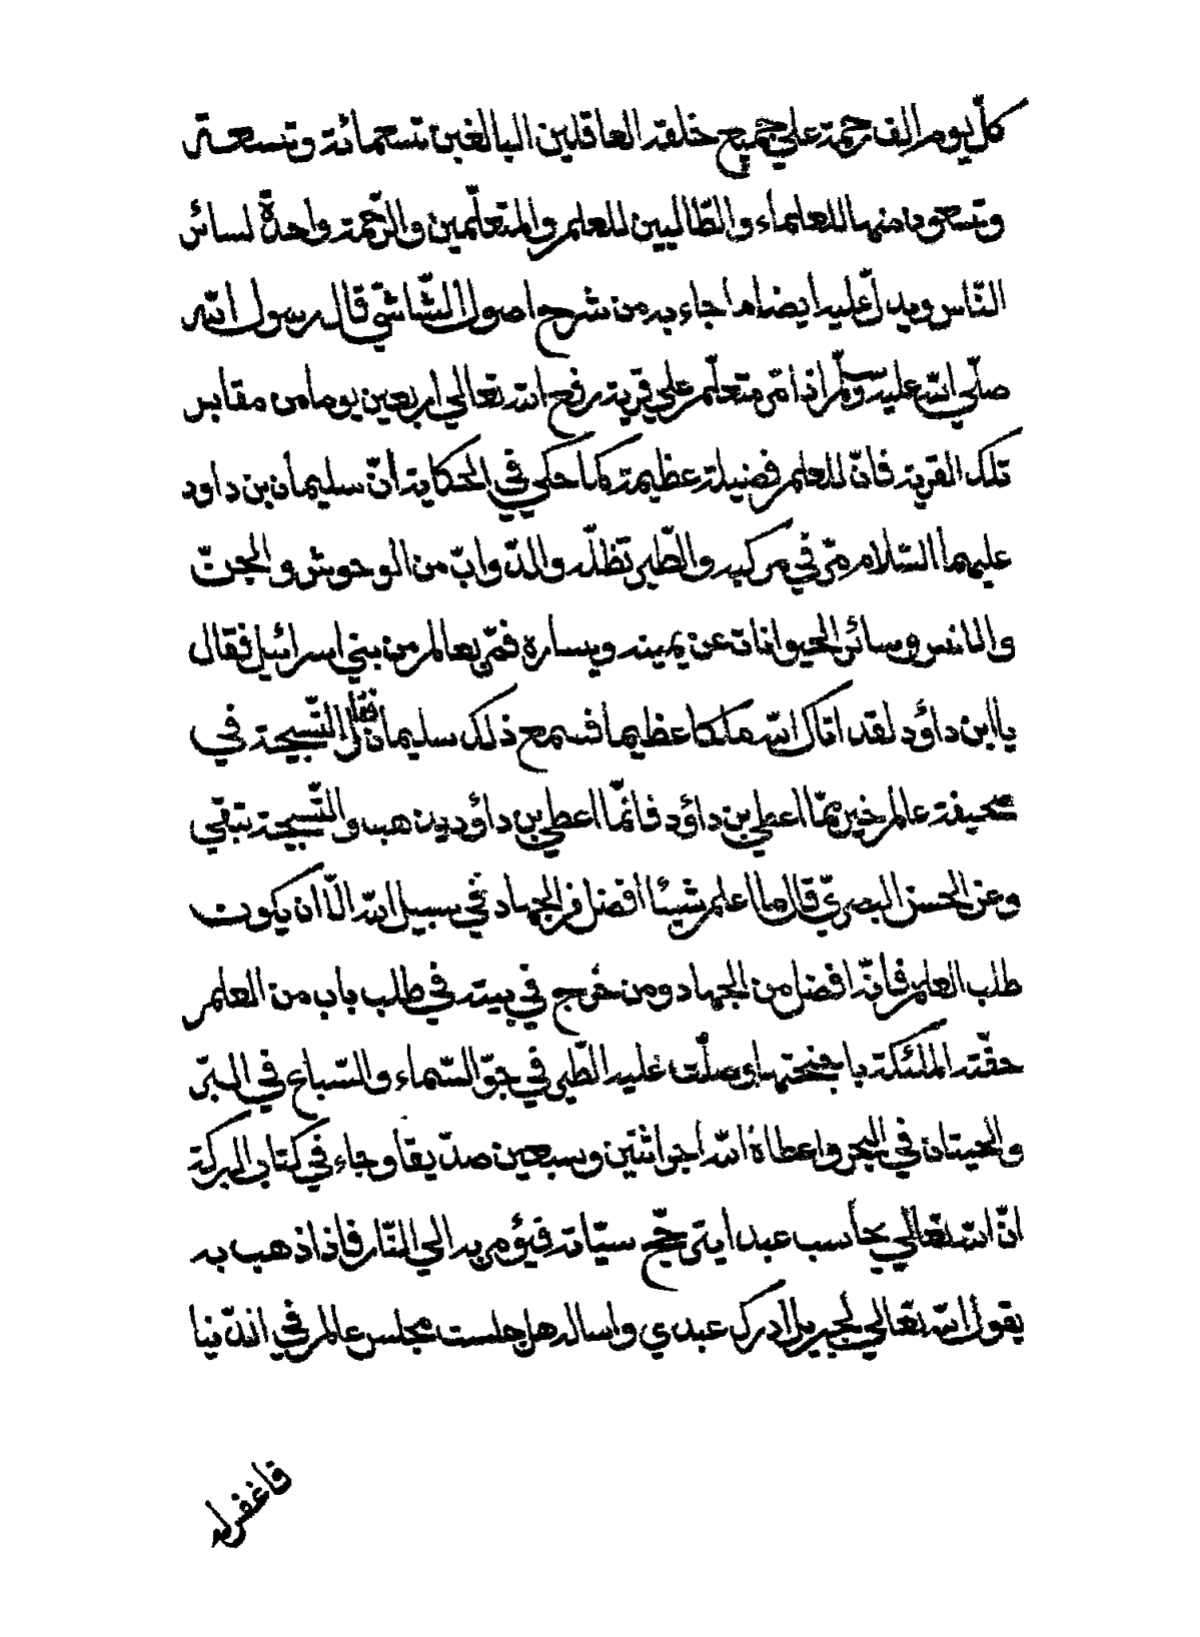 كلّ يوم الف رحمة علي جميع خلقه العاقلين البالغين تسعمائة وتسعة
وتسعون منها للعلماء والطّالبين للعلم والمتعلّمين والرّحمة واحدة لسائر
النّاس ويدلّ عليه ايضا ما جاء به من شرح اصول الشّاشيّ قال رسول الله
صلّي الله عليه وسلّم اذا مرّ متعلّم علي قرية رفع الله تعالي اربعين يوما من مقابر
تلك القرية فانّ للعلم فضيلة عظيمة كما حكي في الحكاية أنّ سليمان بن داود
عليهما السّلام مرّ في مركبه والطّير تظلّه والدّوابّ من الوحوش والجنّ
والانس وسائر الحيوانات عن يمينه ويساره فمرّ بعالم من بني اسرائيل فقال
يا ابن داؤد لقد اتاك الله ملكا عظيما فسمع ذلك سليمان فقال التّسبيحة في
صحيفة عالم خير ممّا اعطي بن داؤد فانّما اعطي بن داؤد يذهب والتّسبيحة تبقي
وعن الحسن البصريّ قال ما اعلم شيئا افضل من الجهاد في سبيل الله الّا ان يكون
طلب العلم فانّه افضل من الجهاد ومن خرج في بيته في طلب باب من العلم
حفّته الملئكة باجنحتها وصلّت عليه الطّير في جوّ السّماء والسّباع في البرّ
والحيتان في البحر واعطاه الله اجر اثنين وسبعين صدّيقا وجاء في كتاب البركة
انّ الله تعالي يحاسب عبدا يتي حجّ سيّاته فيؤمر به الي النّار فاذا ذهب به
يقول الله تعالي لجبريل ادرك عبدي واساله هل جلست مجلس عالم في الدّنيا
فاغفر له